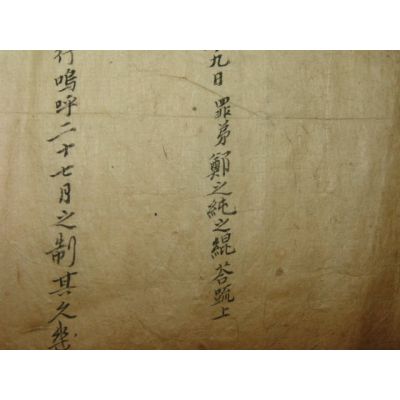 九日 罪弟鄭之純之緄荅疏上
行嗚呼二十七月之制其久幾